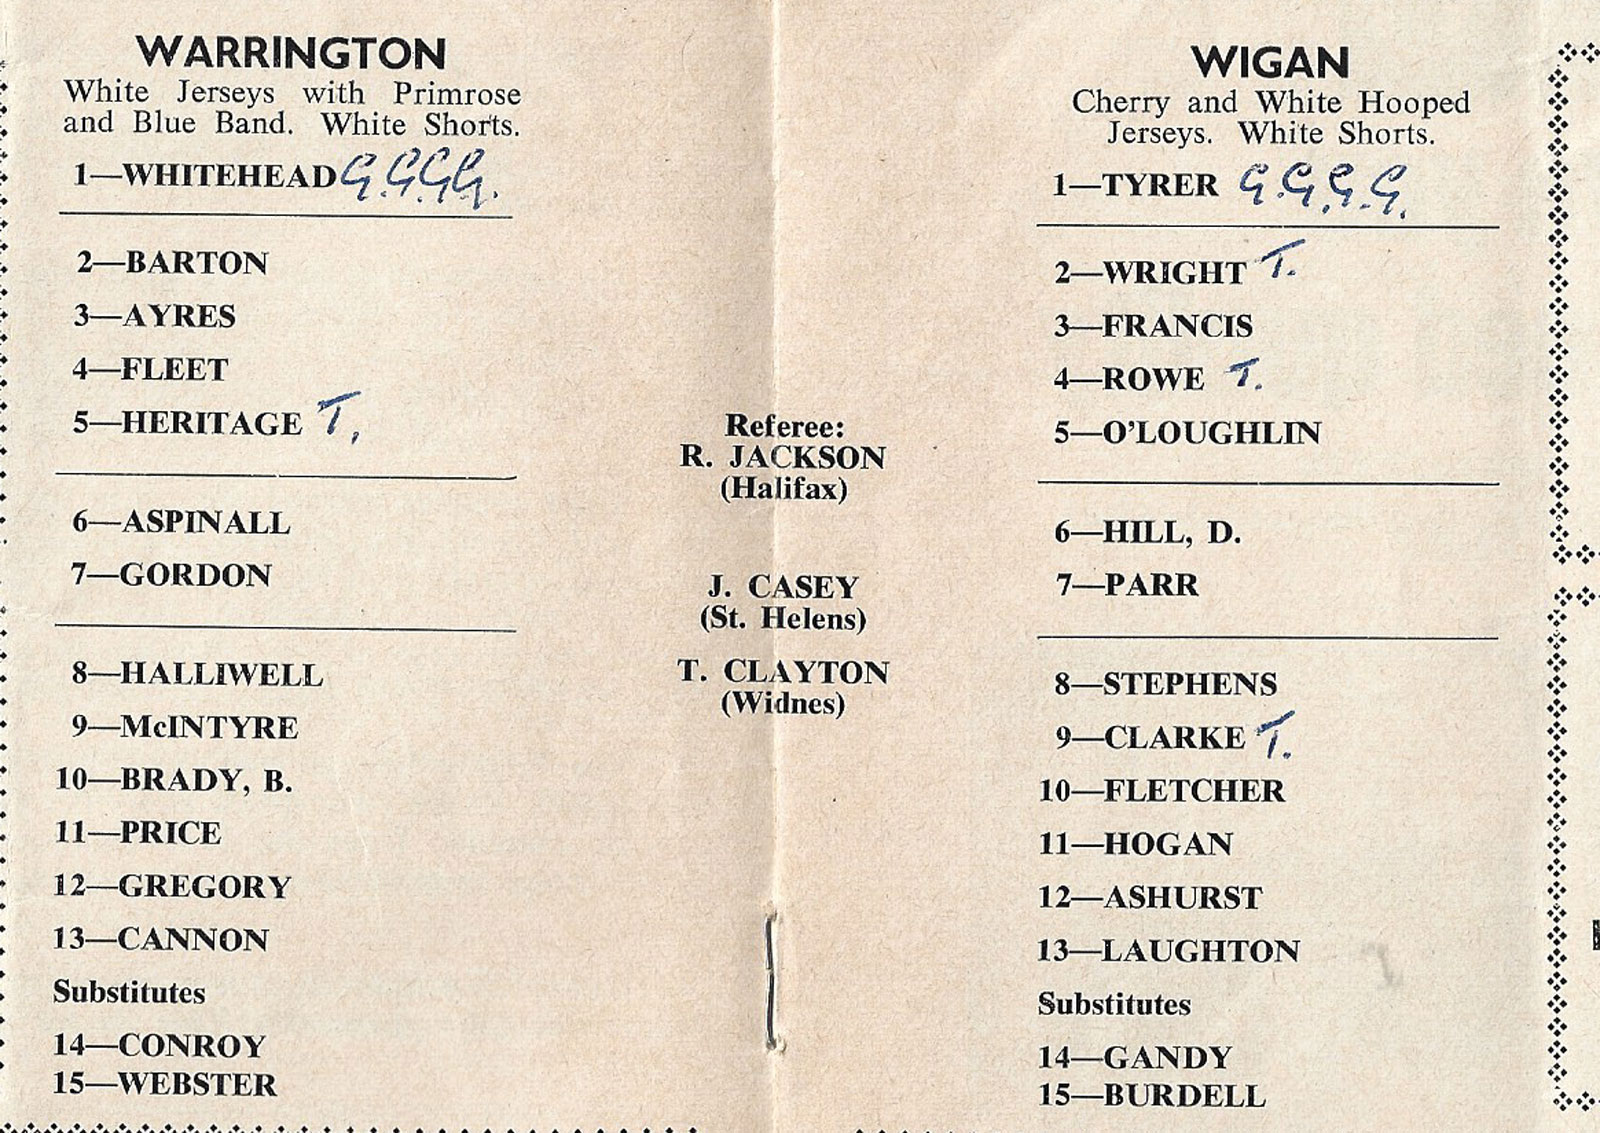 WARRINGTON
White Jerseys with Primrose
and Blue Band. White Shorts.
1—WHITEHEAD G.G.G.G.
2—BARTON
3—AYRES
4—FLEET
5—HERITAGE T.
6—ASPINALL
7—GORDON
8—HALLIWELL
9—McINTYRE
10—BRADY, B.
11—PRICE
12—GREGORY
13—CANNON
Substitutes
14—CONROY
15—WEBSTER
Referee:
R. JACKSON
(Halifax)
J. CASEY
(St. Helens)
T. CLAYTON
(Widnes)
WIGAN
Cherry and White Hooped
Jerseys. White Shorts.
1—TYRER G.G.G.G.
2—WRIGHT T.
3—FRANCIS
4—ROWE T.
5—O'LOUGHLIN
6—HILL, D.
7—PARR
8—STEPHENS
9—CLARKE T.
10—FLETCHER
11—HOGAN
12—ASHURST
13—LAUGHTON
Substitutes
14—GANDY
15—BURDELL